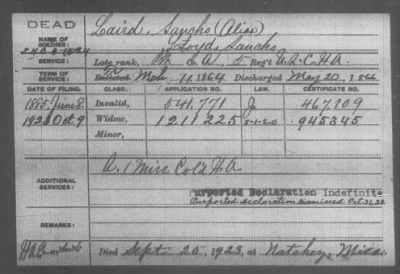 DEAD
NAME OF SOLDIER: Laird, Sancho (Alias)
Loyd, Sancho
SERVICE: Late rank, Reg't U.S.C.H.A.
TERM OF SERVICE: Enlisted Mch 11, 1864 Discharged May 20, 1866
DATE OF FILING. CLASS. APPLICATION NO. LAW. CERTIFICATE NO.
June 8, Invalid, 541,771 467,109
1923 Oct 9 Widow, 1211225 5-1-20 945345
Minor,
ADDITIONAL SERVICES: A. 1 Miss Col'd H.A.
Purported Declaration Indefinite
Purported declaration
REMARKS:
Died Sept. 25, 1923, at Natchez, Miss.